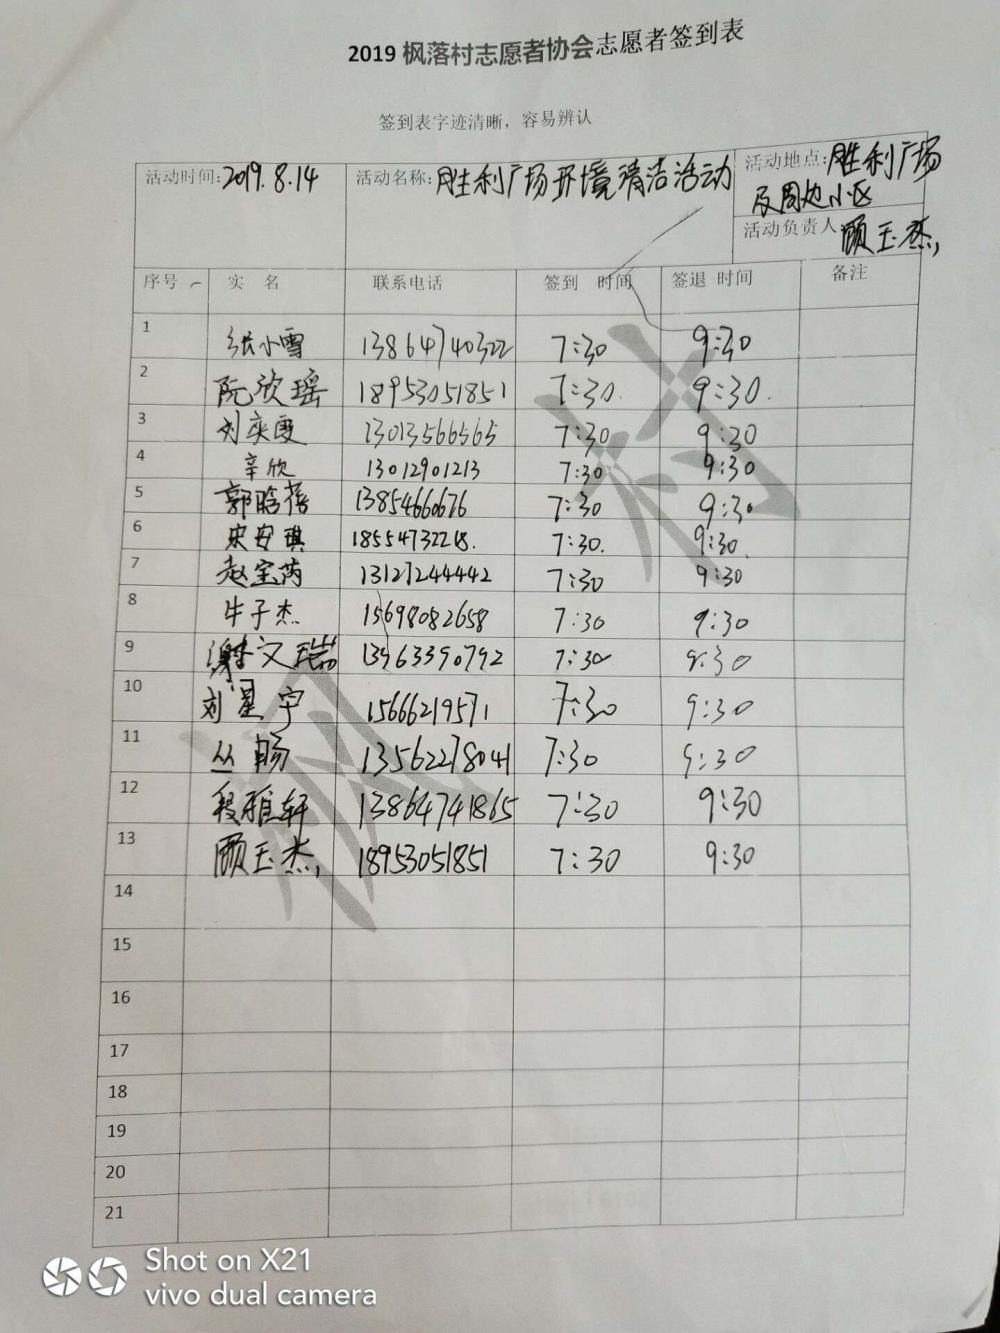 2019 枫落村志愿者协会志愿者签到表
签到表字迹清晰，容易辨认
活动时间:2019.8.14 活动名称:胜利广场环境清洁活动 活动地点:胜利广场
及周边小区
活动负责人 顾玉杰
序号 实 名 联系电话 签到 时间 签退 时间 备注
1 张小雪 13864740322 7:30 9:30
2 阮欣瑶 18953051851 7:30. 9:30.
3 刘奕霞 13013566565 7:30 9:30
4 辛欣 13012901213 7:30 9:30
5 郭晗蓓 13854660676 7:30 9:30
6 宋安琪 7:30. 9:30.
7 赵宝芮 13127244442 7:30 9:30
8 牛子杰 15698082658 7:30 9:30
9 谢文瑞 13963390792 7:30 9:30
10 刘星宇 15666219571 7:30 9:30
11 丛畅 13562278041 7:30 9:30
12 段雅轩 13864741865 7:30 9:30
13 顾玉杰 18953051851 7:30 9:30
14
15
16
17
18
19
20
21
枫 村
Shot on X21
vivo dual camera